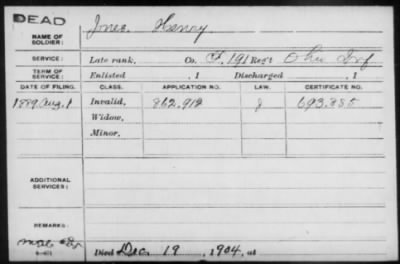 DEAD
NAME OF SOLDIER: Jones. Henry.
SERVICE: Late rank, Co. F, 191 Reg't Ohio Inf
TERM OF SERVICE: Enlisted , 1 Discharged , 1
DATE OF FILING. CLASS. APPLICATION NO. LAW. CERTIFICATE NO.
1889. Aug. 1 Invalid, 862.912 J 693.835
Widow,
Minor,
ADDITIONAL SERVICES:
REMARKS:
Died Dec. 19, 1904, at